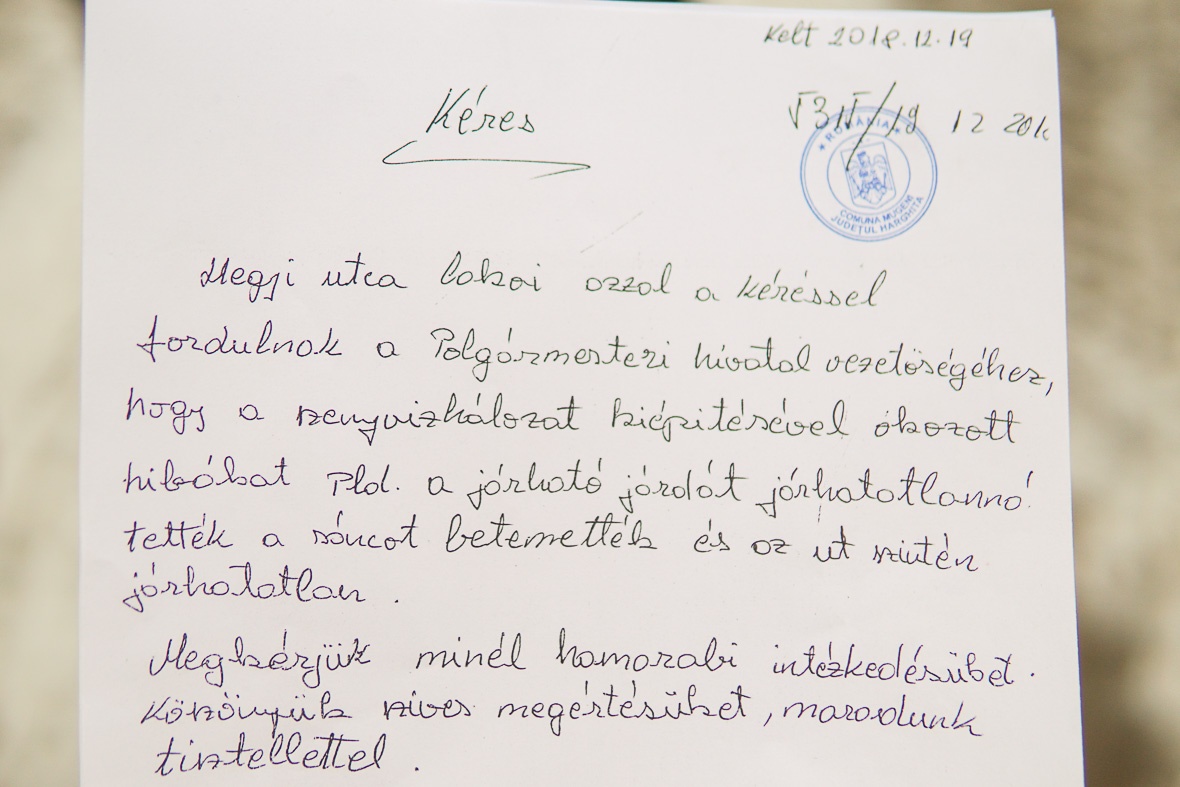 Kelt 2018.12.19
Kéres
19 12 201
ROMÂNIA
COMUNA MUGENI
JUDEȚUL HARGHITA
Hegji utca lakai azzal a kéréssel
fordulnak a Polgármesteri hivatal vezetöségéhez,
hogy a szenyvizhálozat kiépitésével ókozott
hibákat Pld. a járható járdát járhatatlanná
tették a sáncot betemették és az ut szintén
járhatatlan.
Megkérjük minél hamorabi intézkedésüket.
Köszönyük szives megértésüket, maradunk
tisztellettel.